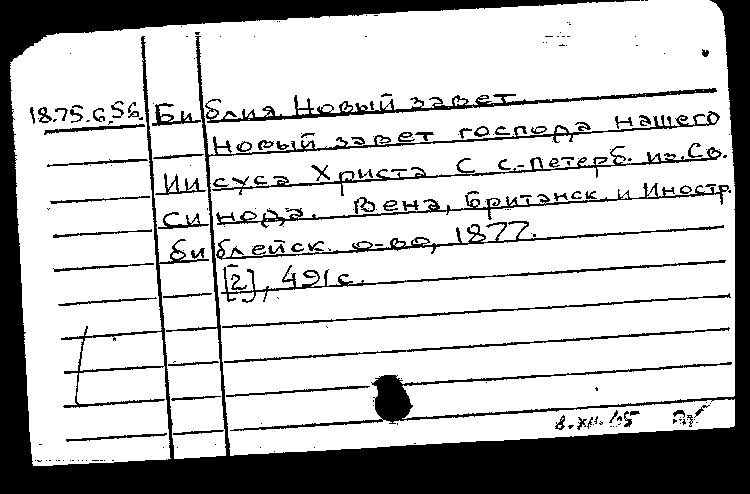 18.75.6.56. Библия. Новый завет.
Новый завет господа нашего
Иисуса Христа С С.-Петерб. из. Св.
Синода. Вена, Британск. и Иностр.
библейск. о-во, 1877.
[2], 491 с.
8.XII.45